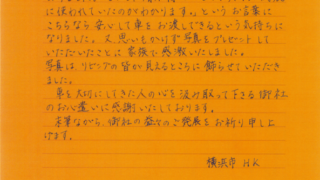 に使われていたのがわかります。」というお言葉に
こちらなら安心して車をお渡しできるという気持ちに
なりました。又、思いもかけず写真をプレゼントして
いただいたことは家族で感激いたしました。
写真は、リビングの皆が見えるところに飾らせていただき
ました。
車を大切にしてきた人の心を汲み取って下さる御社
のお心遣いに感謝いたしております。
末筆ながら、御社の益々のご発展をお祈り申し上
げます。
横浜市 H.K